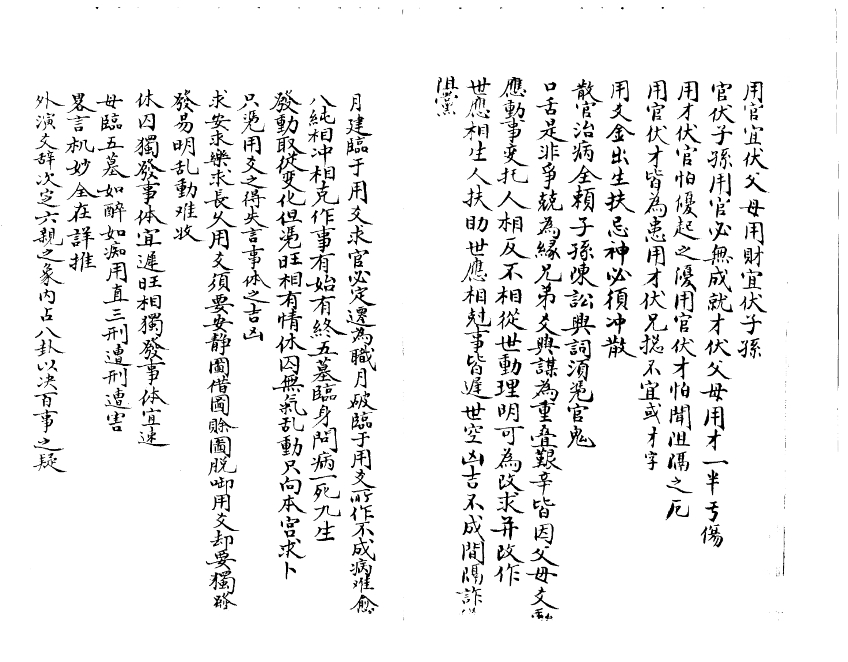 用官宜伏父母用財宜伏子孫
官伏子孫用官必無成就才伏父母用才一半亏傷
用才伏官怕優起之憂用官伏才怕聞阻隔之厄
用官伏才皆為患用才伏兄摠不宜或才字
用爻金出生扶忌神必須冲散
散官治病全頼子孫陳訟興詞須凴官鬼
口舌是非爭競為緣兄弟爻興謀為重叠艱辛皆因父母爻動
應動事变托人相反不相從世動理明可為改求并改作
世應相生人扶助世應相尅事皆遲世空凶吉不成間隔詐
阻黨
月建臨于用爻求官必定遷為職月破臨于用爻所作不成病难愈
八純相冲相克作事有始有終五墓臨身問病一死九生
發動取從变化但凴旺相有情休囚無氣乱動只向本宮求卜
只凴用爻之得失言事体之吉凶
求安求樂求長久用爻須要安静圖借圖賒圖脫啣用爻却要獨發
發易明乱動难收
休囚獨發事体宜遲旺相獨發事体宜速
母臨五墓如醉如痴用直三刑遭刑遭害
畧言机妙全在詳推
外演爻辞次定六親之象内占八卦以决百事之疑